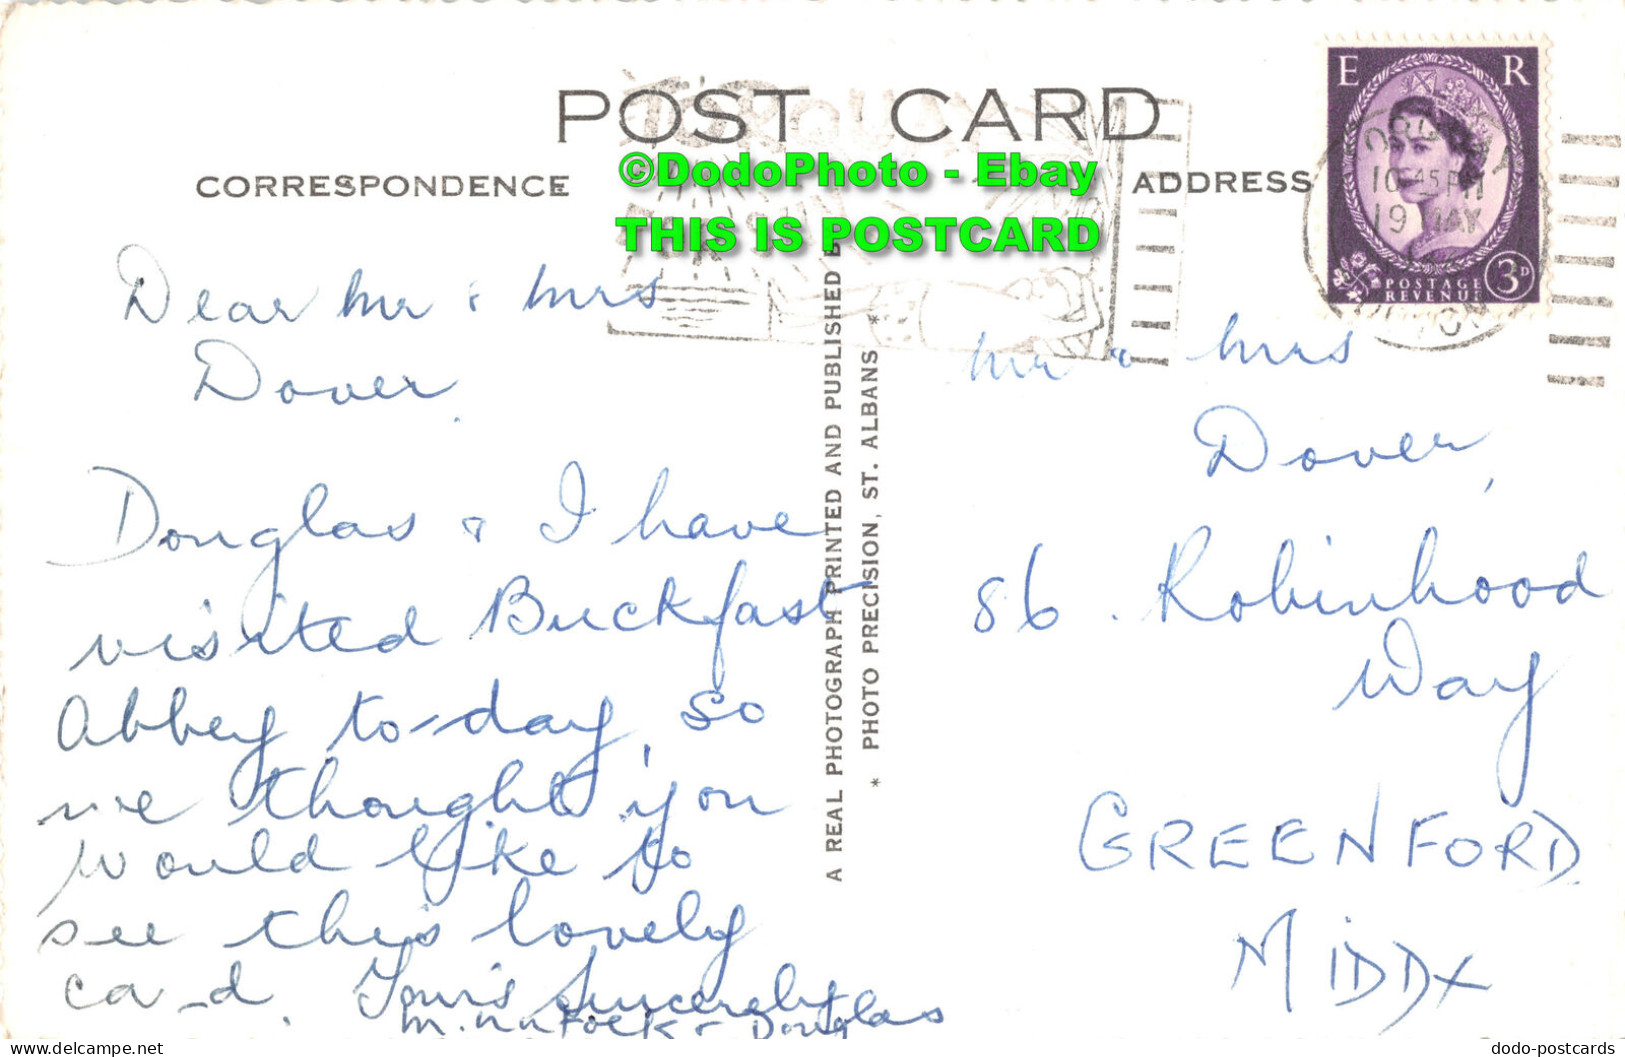 POST CARD
©DodoPhoto - Ebay
THIS IS POSTCARD
CORRESPONDENCE
ADDRESS
E R
10.45 PM
19 MAY
POSTAGE
REVENUE
3D
Dear Mr & Mrs
Dover.
Douglas & I have
visited Buckfast
Abbey to-day, so
we thought you
would like to
see this lovely
ca_d. Yours Sincerely
& Douglas
A REAL PHOTOGRAPH PRINTED AND PUBLISHED B
* PHOTO PRECISION, ST. ALBANS *
Mr & Mrs
Dover,
86. Robinhood
Way
GREENFORD
MIDDX
dodo-postcards
delcampe.net